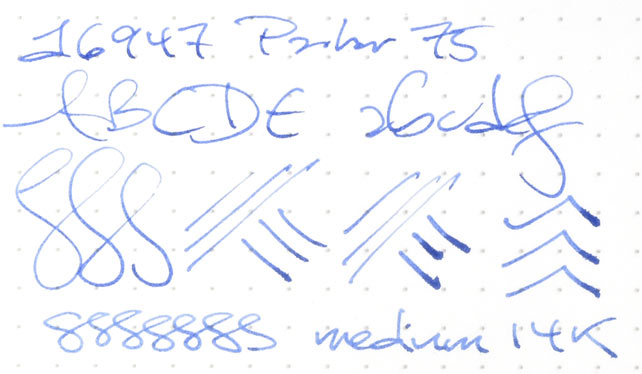 16947 Parker 75
ABCDE abcdef
888
8888888 medium 14K